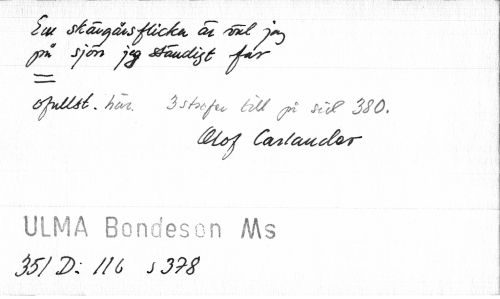 En skärgårsflicka är väl jag
på sjön jag ständigt far
ofullst. här. 3 strofer till på sid 380.
Olof Carlander
ULMA Bondeson Ms
351 D: 116 s 378